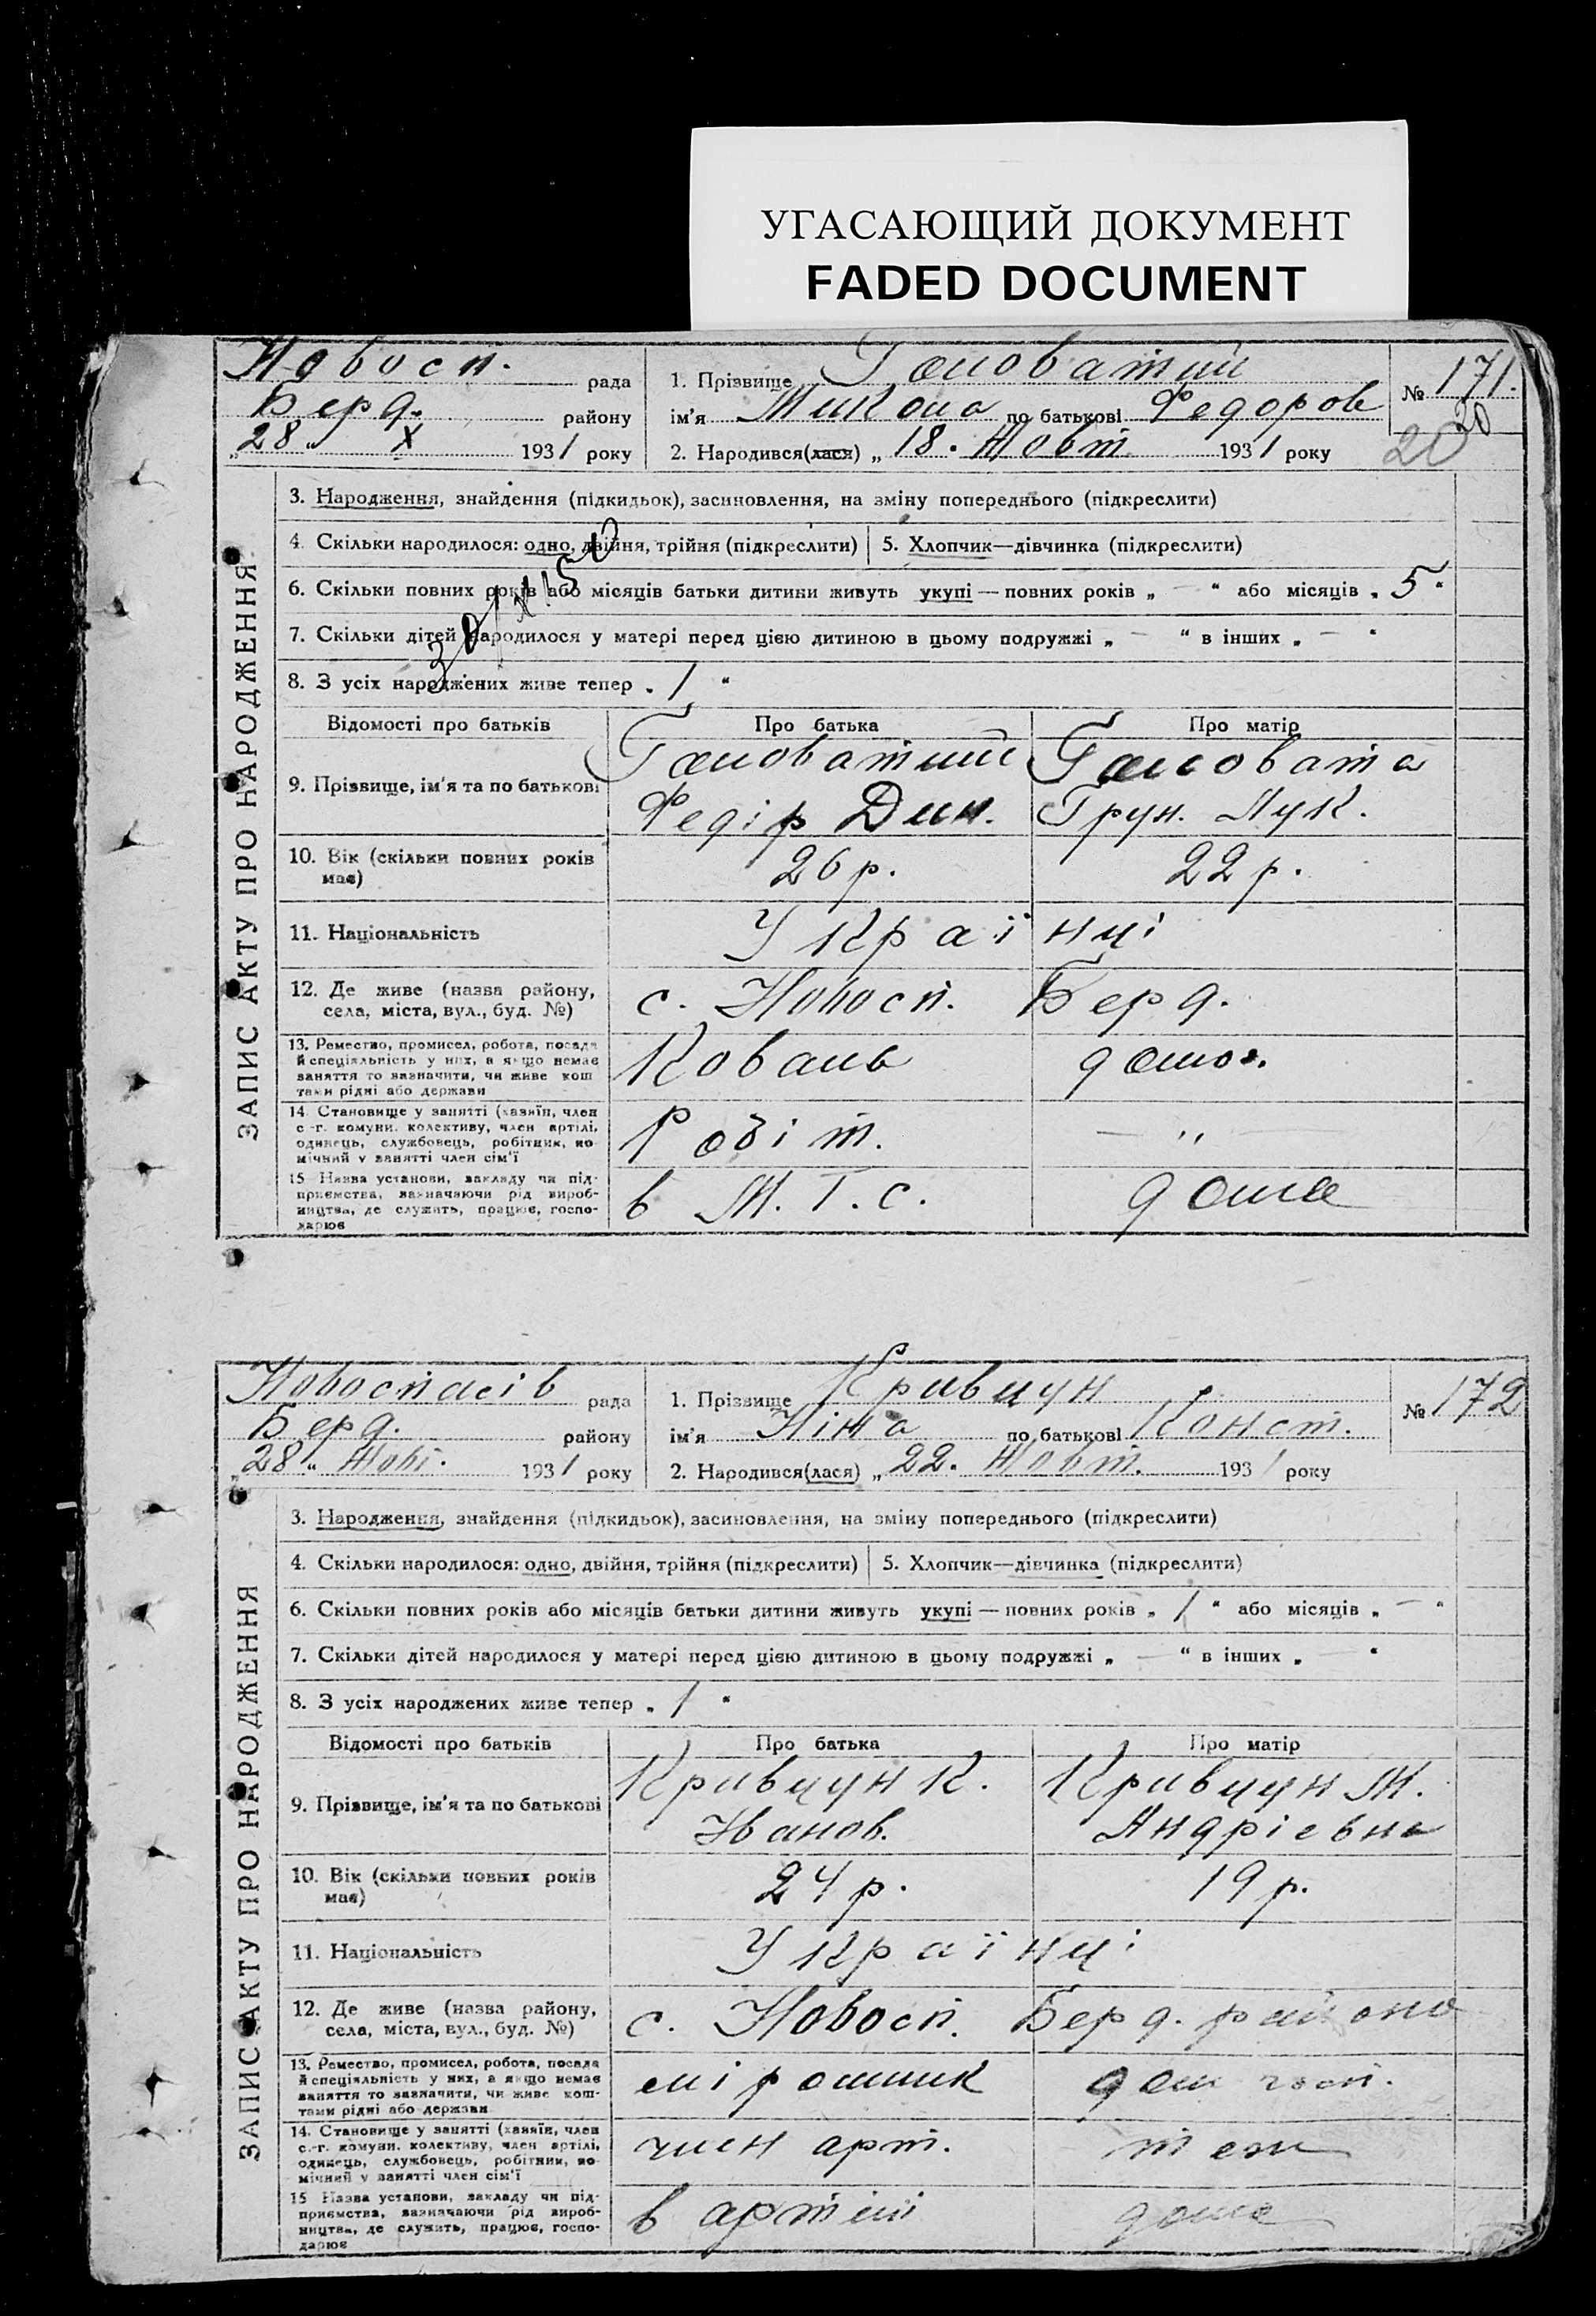 УГАСАЮЩИЙ ДОКУМЕНТ
FADED DOCUMENT
Новосп. рада
Берд. району
„28„ X 1931 року
1. Прізвище Головатий
ім'я Микола по батькові Федоров
2. Народився(лася) „18. Жовт. 1931 року
№ 171.
20
20
ЗАПИС АКТУ ПРО НАРОДЖЕННЯ
3. Народження, знайдення (підкидьок), засиновлення, на зміну попереднього (підкреслити)
4. Скільки народилося: одно, двійня, трійня (підкреслити)
5. Хлопчик—дівчинка (підкреслити)
6. Скільки повних років або місяців батьки дитини живуть укупі — повних років „ — “ або місяців „ 5 “
7. Скільки дітей народилося у матері перед цією дитиною в цьому подружжі „ — “ в інших „ — “
8. З усіх народжених живе тепер „ 1 “
Відомості про батьків
Про батька
Про матір
9. Прізвище, ім'я та по батькові
Головатий
Федір Дим.
Головата
Грун. Лук.
10. Вік (скільки повних років має)
26 р.
22 р.
11. Національність
Українці
12. Де живе (назва району,
села, міста, вул., буд. №)
с. Новосп. Берд.
13. Ремество, промисел, робота, посада
й спеціяльність у них, а якщо немає
заняття то зазначити, чи живе кош
тами рідні або держави
Коваль
домог.
14. Становище у занятті (хазяїн, член
с.-г. комуни, колективу, член артілі,
одинець, службовець, робітник, по
мічний у занятті член сім'ї
Робіт.
— „ —
15 Назва установи, закладу чи під-
приємства, зазначаючи рід вироб-
ництва, де служить, працює, госпо-
дарює
в М. Т. С.
дома
Новоспасів рада
Берд. району
„28“ Жовт. 1931 року
1. Прізвище Кривцун
ім'я Ніна по батькові Конст.
2. Народився(лася) „22. Жовт. 1931 року
№ 172
ЗАПИС АКТУ ПРО НАРОДЖЕННЯ
3. Народження, знайдення (підкидьок), засиновлення, на зміну попереднього (підкреслити)
4. Скільки народилося: одно, двійня, трійня (підкреслити)
5. Хлопчик—дівчинка (підкреслити)
6. Скільки повних років або місяців батьки дитини живуть укупі — повних років „ 1 “ або місяців „ — “
7. Скільки дітей народилося у матері перед цією дитиною в цьому подружжі „ — “ в інших „ — “
8. З усіх народжених живе тепер „ 1 “
Відомості про батьків
Про батька
Про матір
9. Прізвище, ім'я та по батькові
Кривцун К.
Іванов.
Кривцун М.
Андрієвна
10. Вік (скільки повних років має)
24 р.
19 р.
11. Національність
Українці
12. Де живе (назва району,
села, міста, вул., буд. №)
с. Новосп. Берд. району
13. Ремество, промисел, робота, посада
й спеціяльність у них, а якщо немає
заняття то зазначити, чи живе кош-
тами рідні або держави
мірошник
дом госп.
14. Становище у занятті (хазяїн, член
с.-г. комуни, колективу, член артілі,
одинець, службовець, робітник, по
мічний у занятті член сім'ї
член арт.
теж
15 Назва установи, закладу чи під-
приємства, зазначаючи рід вироб-
ництва, де служить, працює, госпо-
дарює
в артілі
дома